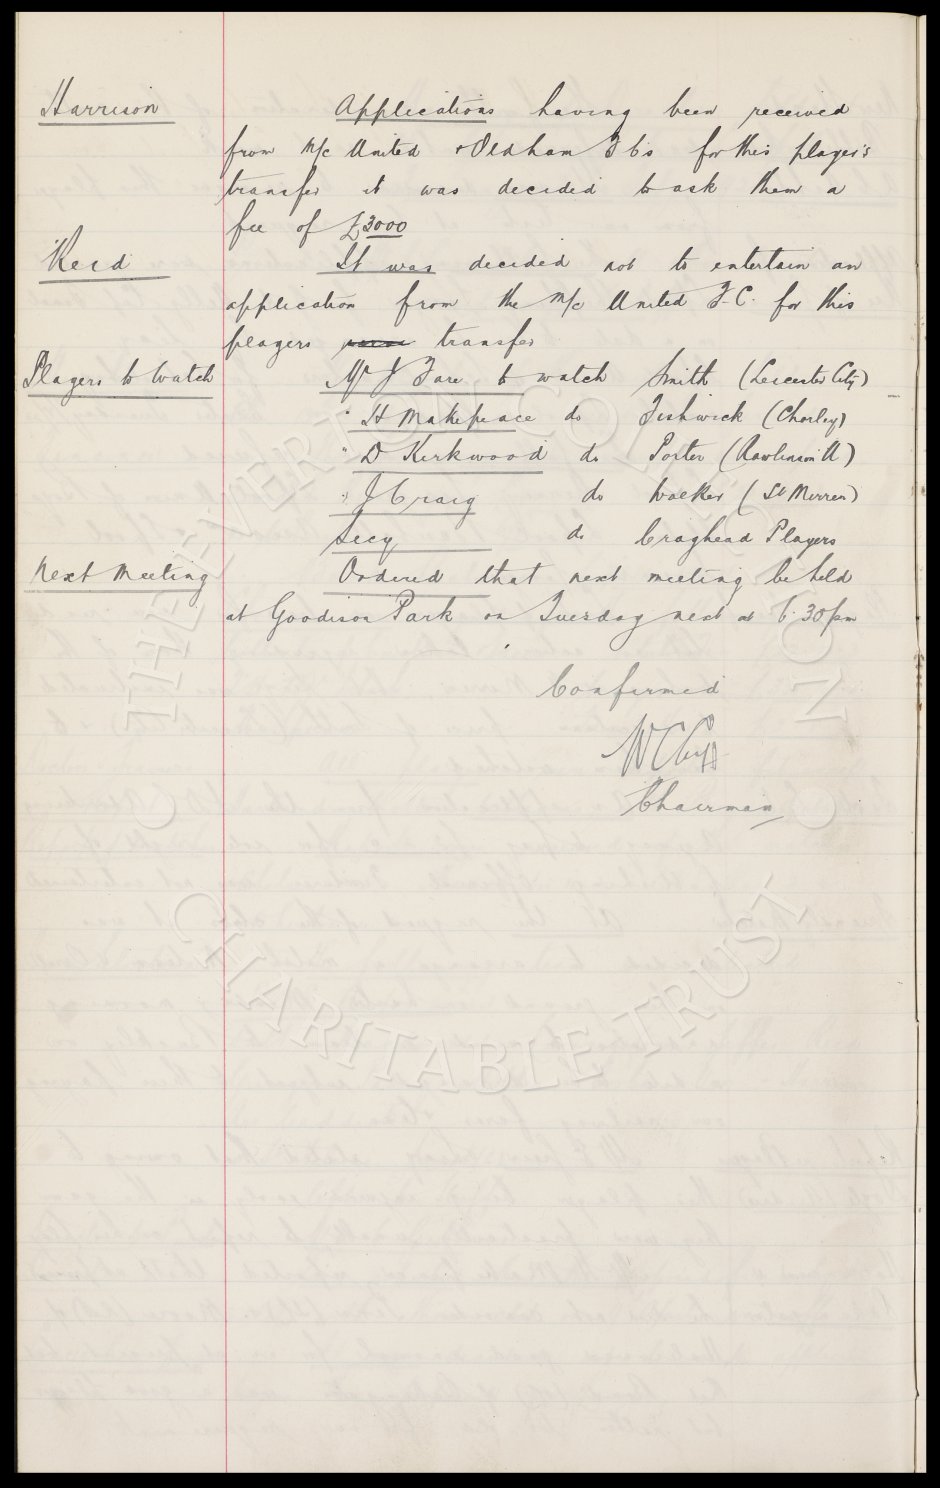 Harrison Applications having been received
from M/c United & Oldham F Cs for this player's
transfer it was decided to ask them a
fee of £3000
Reid It was decided not to entertain an
application from the M/c United F.C. for this
players transfer
Players to Watch Mr J Fare to watch Smith (Leicester City)
" H Makepeace do Fishwick (Chorley)
" D Kirkwood do Porter (Rawlinson U)
" J Craig do Walker (St Mirren)
Secy do Craghead Players
Next Meeting Ordered that next meeting be held
at Goodison Park on Tuesday next at 6.30pm
Confirmed
W C Cuff
Chairman
THE EVERTON COLLECTION
CHARITABLE TRUST